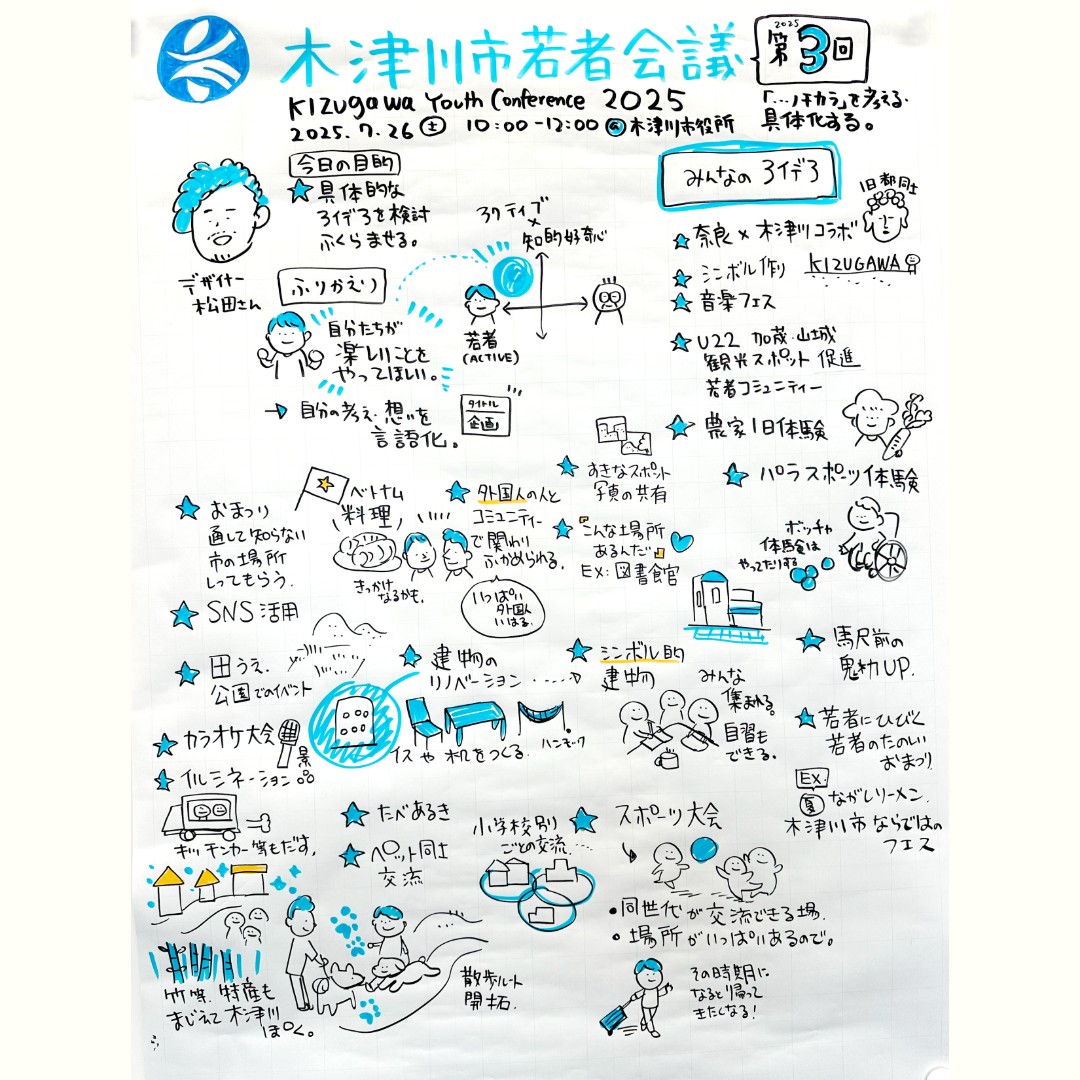 木津川市若者会議
2025
第3回
KIZUGAWA Youth Conference 2025
2025.7.26 土 10:00-12:00 @木津川市役所
「…ノチカラ」を考える・
具体化する。
今日の目的
具体的な
アイデアを検討
ふくらませる。
デザイナー
松田さん
ふりかえり
自分たちが
楽しいことを
やってほしい。
→ 自分の考え・想いを
言語化。
タイトル
企画
アクティブ
×
知的好奇心
若者
(ACTIVE)
みんなの アイデア
旧都同士
奈良×木津川コラボ
シンボル作り
KIZUGAWA
音楽フェス
U22 加茂・山城
観光スポット 促進
若者コミュニティー
農家1日体験
パラスポーツ体験
ボッチャ
体験会は
やってたりする
おまつり
通して知らない
市の場所
しってもらう.
ベトナム
料理
きっかけ
なるかも.
外国人の人と
コミュニティー
で関わり
ふかめられる.
いっぱい
外国人
いはる.
すきなスポット
写真の共有
"こんな場所
あるんだ"
EX: 図書館
SNS活用
田うえ.
公園でのイベント
建物の
リノベーション
イスや机をつくる.
ハンモック
シンボル的
建物
みんな
集まれる.
自習も
できる.
駅前の
魅力UP.
若者にひびく
若者のたのしい
おまつり
EX.
夏 ながしソーメン.
木津川市ならではの
フェス
カラオケ大会
イルミネーション
キッチンカー等もだす.
たべあるき
ペット同士
交流
小学校別
ごとの交流....
スポーツ大会
・同世代が交流できる場.
・場所がいっぱいあるので。
その時期に
なると帰って
きたくなる!
竹等.特産も
まじえて木津川
ぽく。
散歩ルート
開拓.